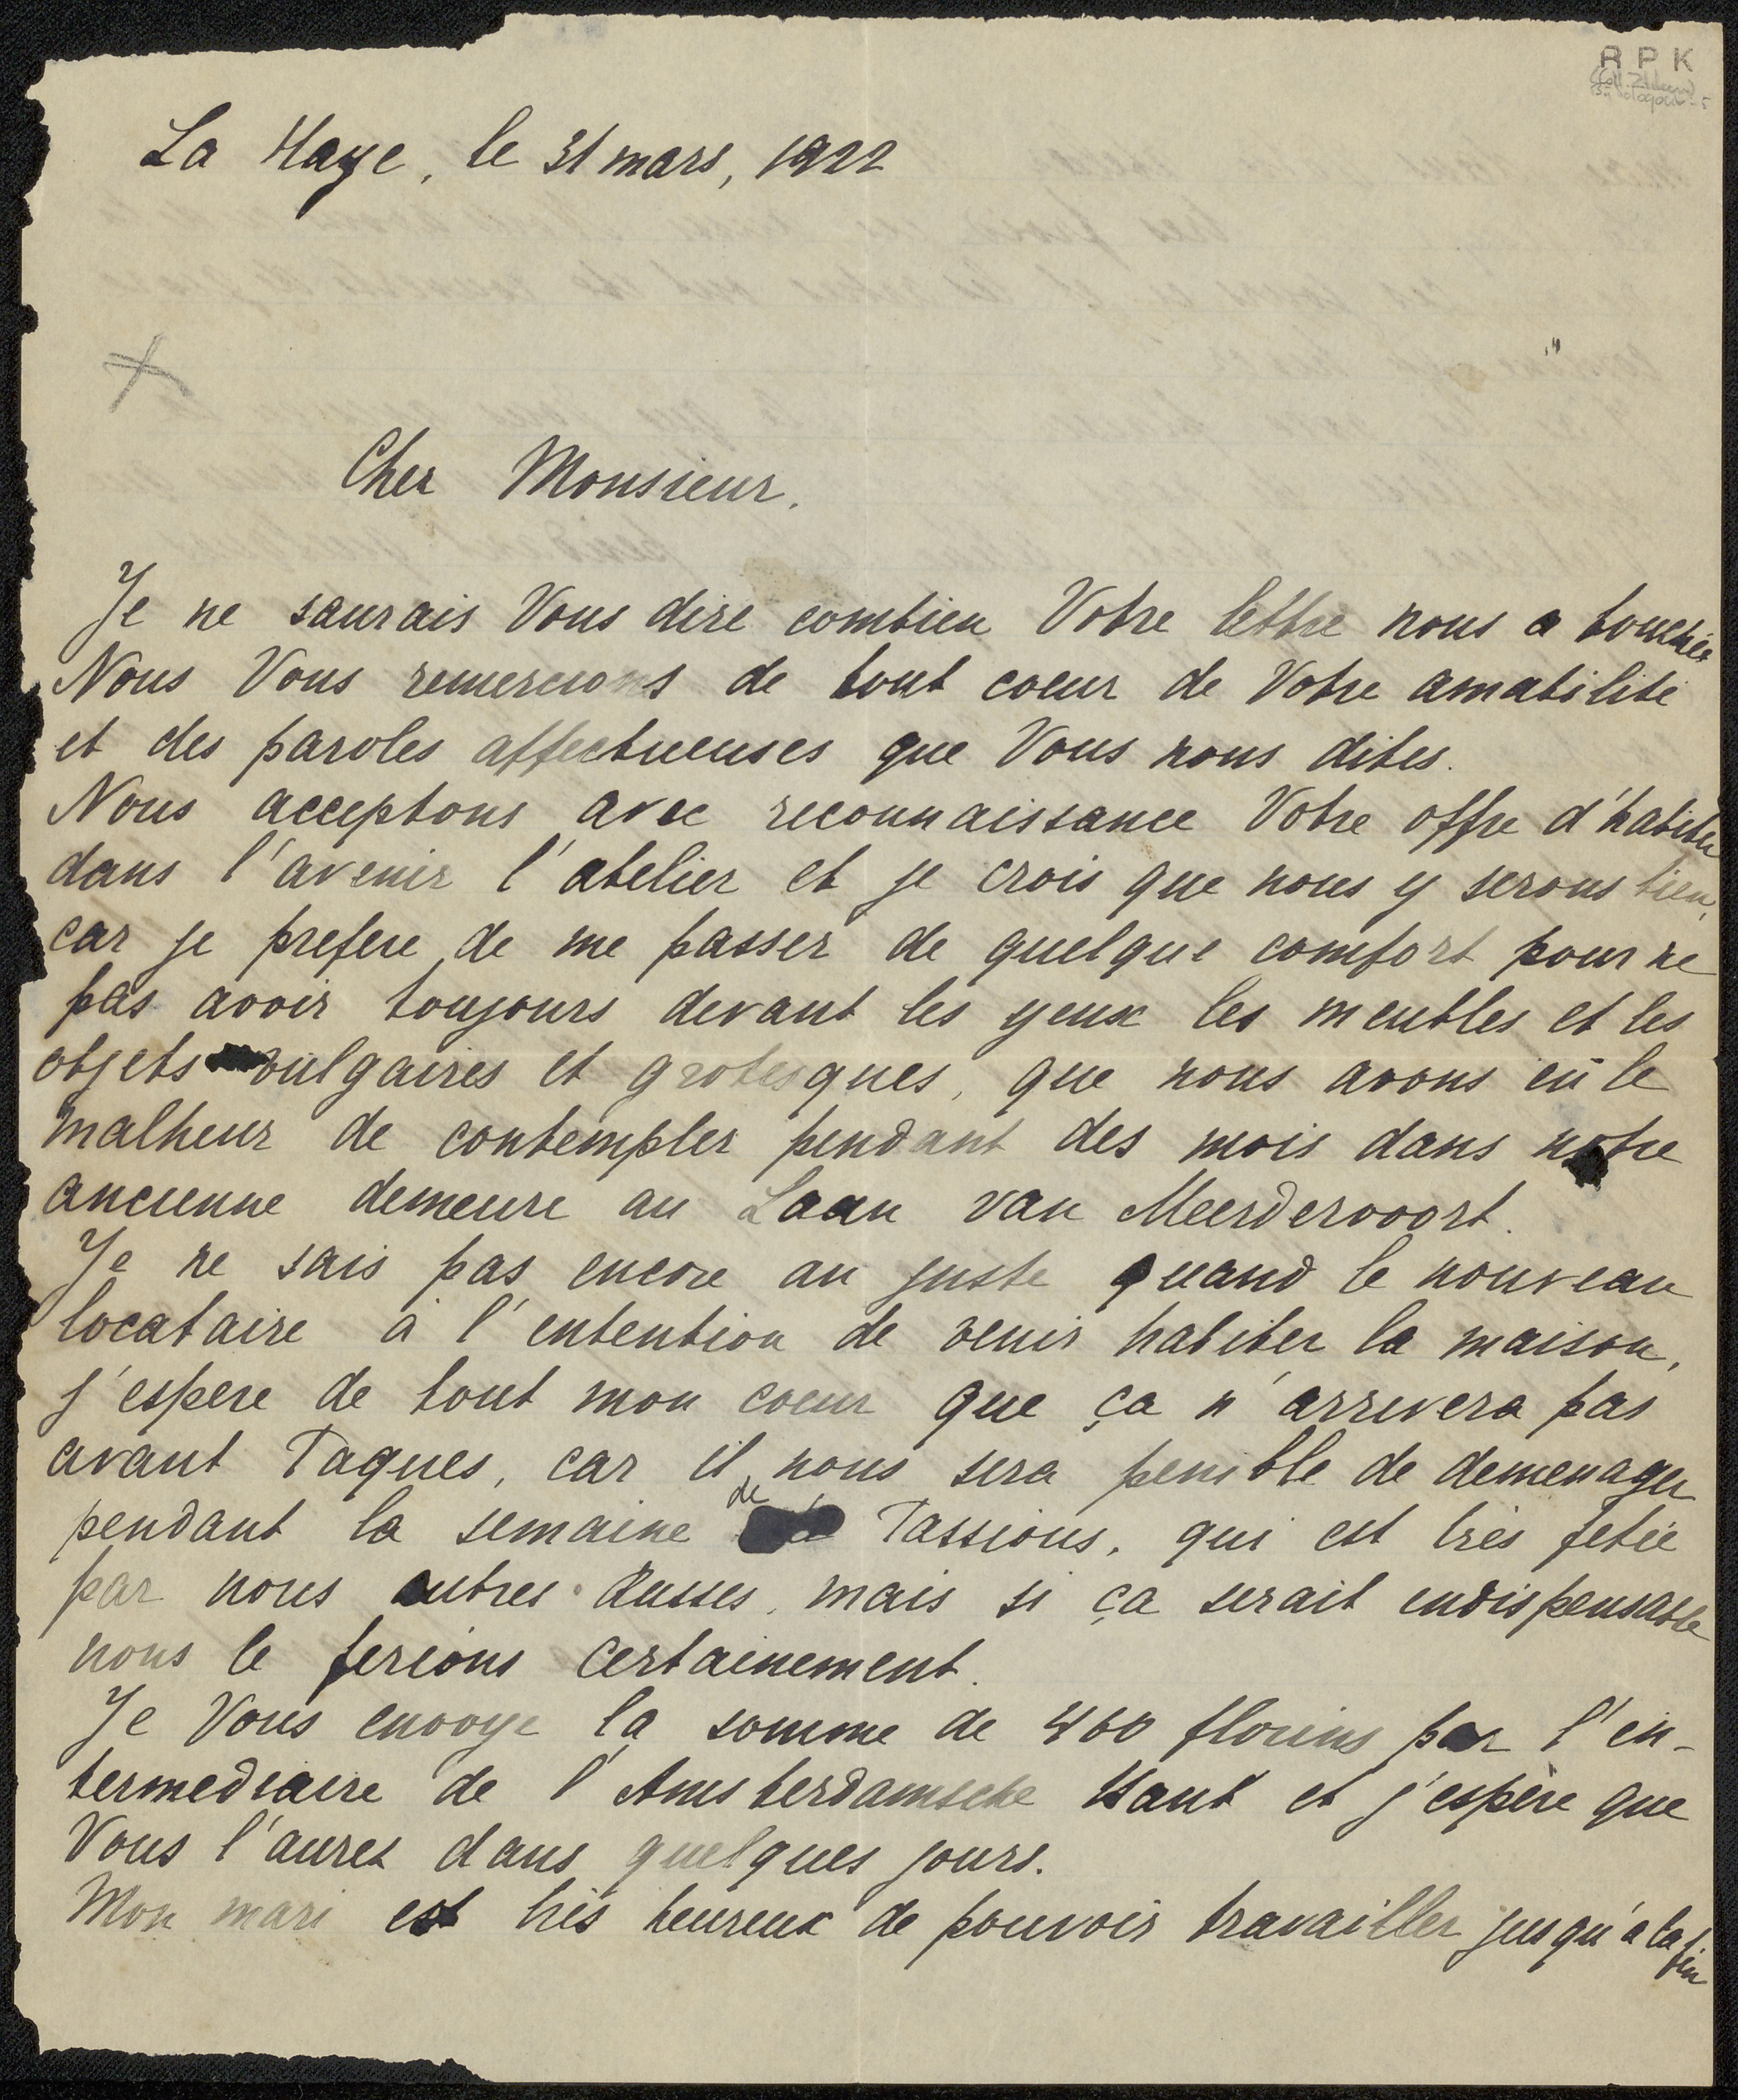 R P K
La Haye, le 31 mars, 1922
Cher Monsieur,
Je ne saurais Vous dire combien Votre lettre nous a touchés
Nous Vous remercions de tout coeur de Votre amabilité
et des paroles affectueuses que Vous nous dites.
Nous acceptons avec reconnaissance Votre offre d'habiter
dans l'avenir l'atelier et je crois que nous y serons bien,
car je prefere de me passer de quelque comfort pour ne
pas avoir toujours devant les yeux les meubles et les
objets vulgaires et grotesques, que nous avons eû le
malheur de contempler pendant des mois dans notre
ancienne demeure au Laan van Meerdervoort.
Je ne sais pas encore au juste quand le nouveau
locataire à l'intention de venir habiter la maison,
j'espere de tout mon coeur que ça n'arrivera pas
avant Paques, car il nous sera penible de demenager
pendant la semaine de Passions, qui est très fetée
par nous autres Russes, mais si ça serait indispensable
nous le ferions certainement.
Je Vous envoye la somme de 400 florins par l'in-
termediaire de l'Amsterdamsche Bank et j'espère que
Vous l'aurez dans quelques jours.
Mon mari est très heureux de pouvoir travailler jusqu'a la fin